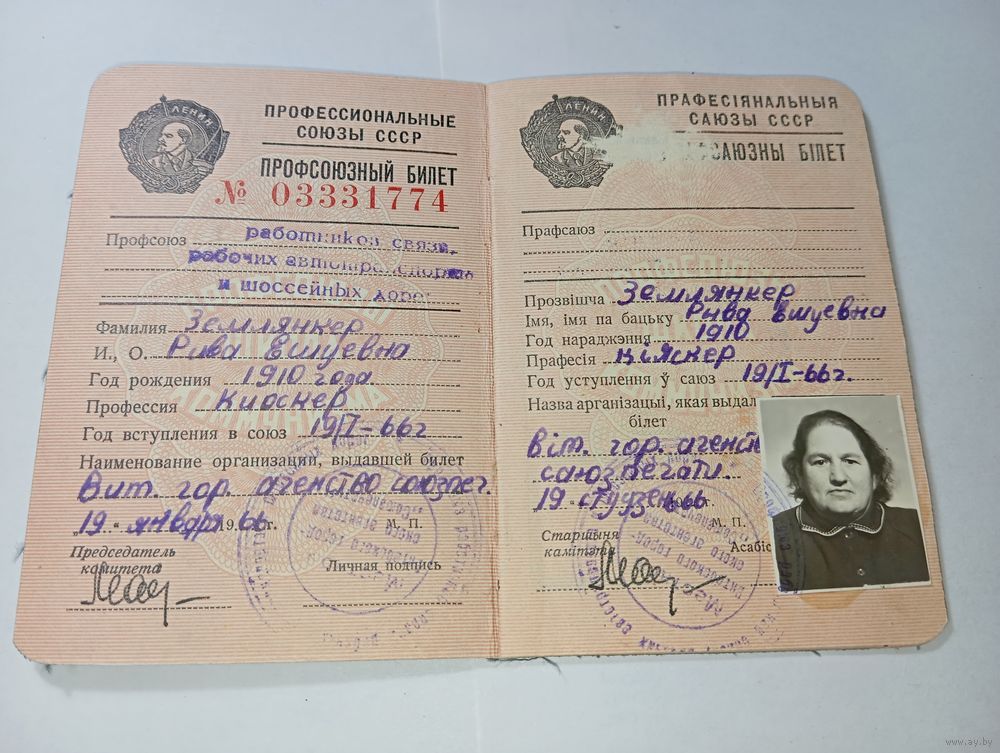 ЛЕНИН
ПРОФЕССИОНАЛЬНЫЕ
СОЮЗЫ СССР
ПРОФСОЮЗНЫЙ БИЛЕТ
№ 03331774
Профсоюз работников связи,
рабочих автотранспорта
и шоссейных дорог
Фамилия Землянкер
И., О. Рива Вшуевна
Год рождения 1910 года
Профессия Киоскер
Год вступления в союз 19/I-66г
Наименование организации, выдавшей билет
Вит. гор. агенство союзпеч.
„19“ января 1966 г.
М. П.
Председатель
комитета
Личная подпись
ЛЕНИН
ПРАФЕСІЯНАЛЬНЫЯ
САЮЗЫ СССР
БІЛЕТ
Прафсаюз
Прозвішча Землянкер
Імя, імя па бацьку Рыва Вшуевна
Год нараджэння 1910
Прафесія кіяскер
Год уступлення ў саюз 19/I-66г.
Назва арганізацыі, якая выдал
білет
Віт. гор. агенст
саюзпечати.
19 студзеня 66
М. П.
Старшыня
камітэта
Асабіс
www.ay.by